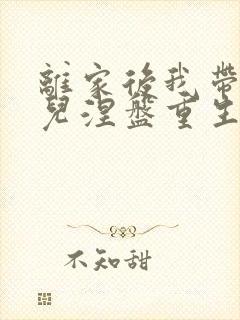 離家後我帶
兒涅盤重生
不知甜